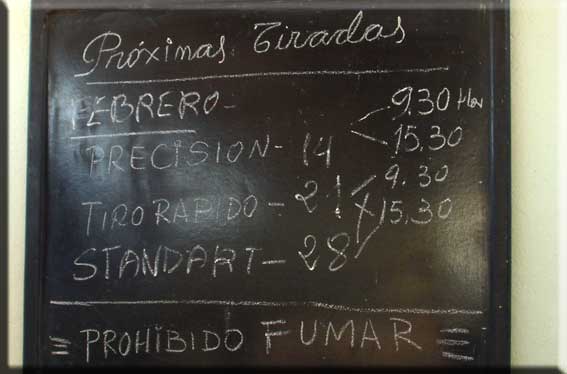 Próximas Tiradas
FEBRERO-
9.30 Hrs
PRECISION- 14
15.30
9.30
TIRO RAPIDO - 21
15.30
STANDART - 28
= PROHIBIDO FUMAR =